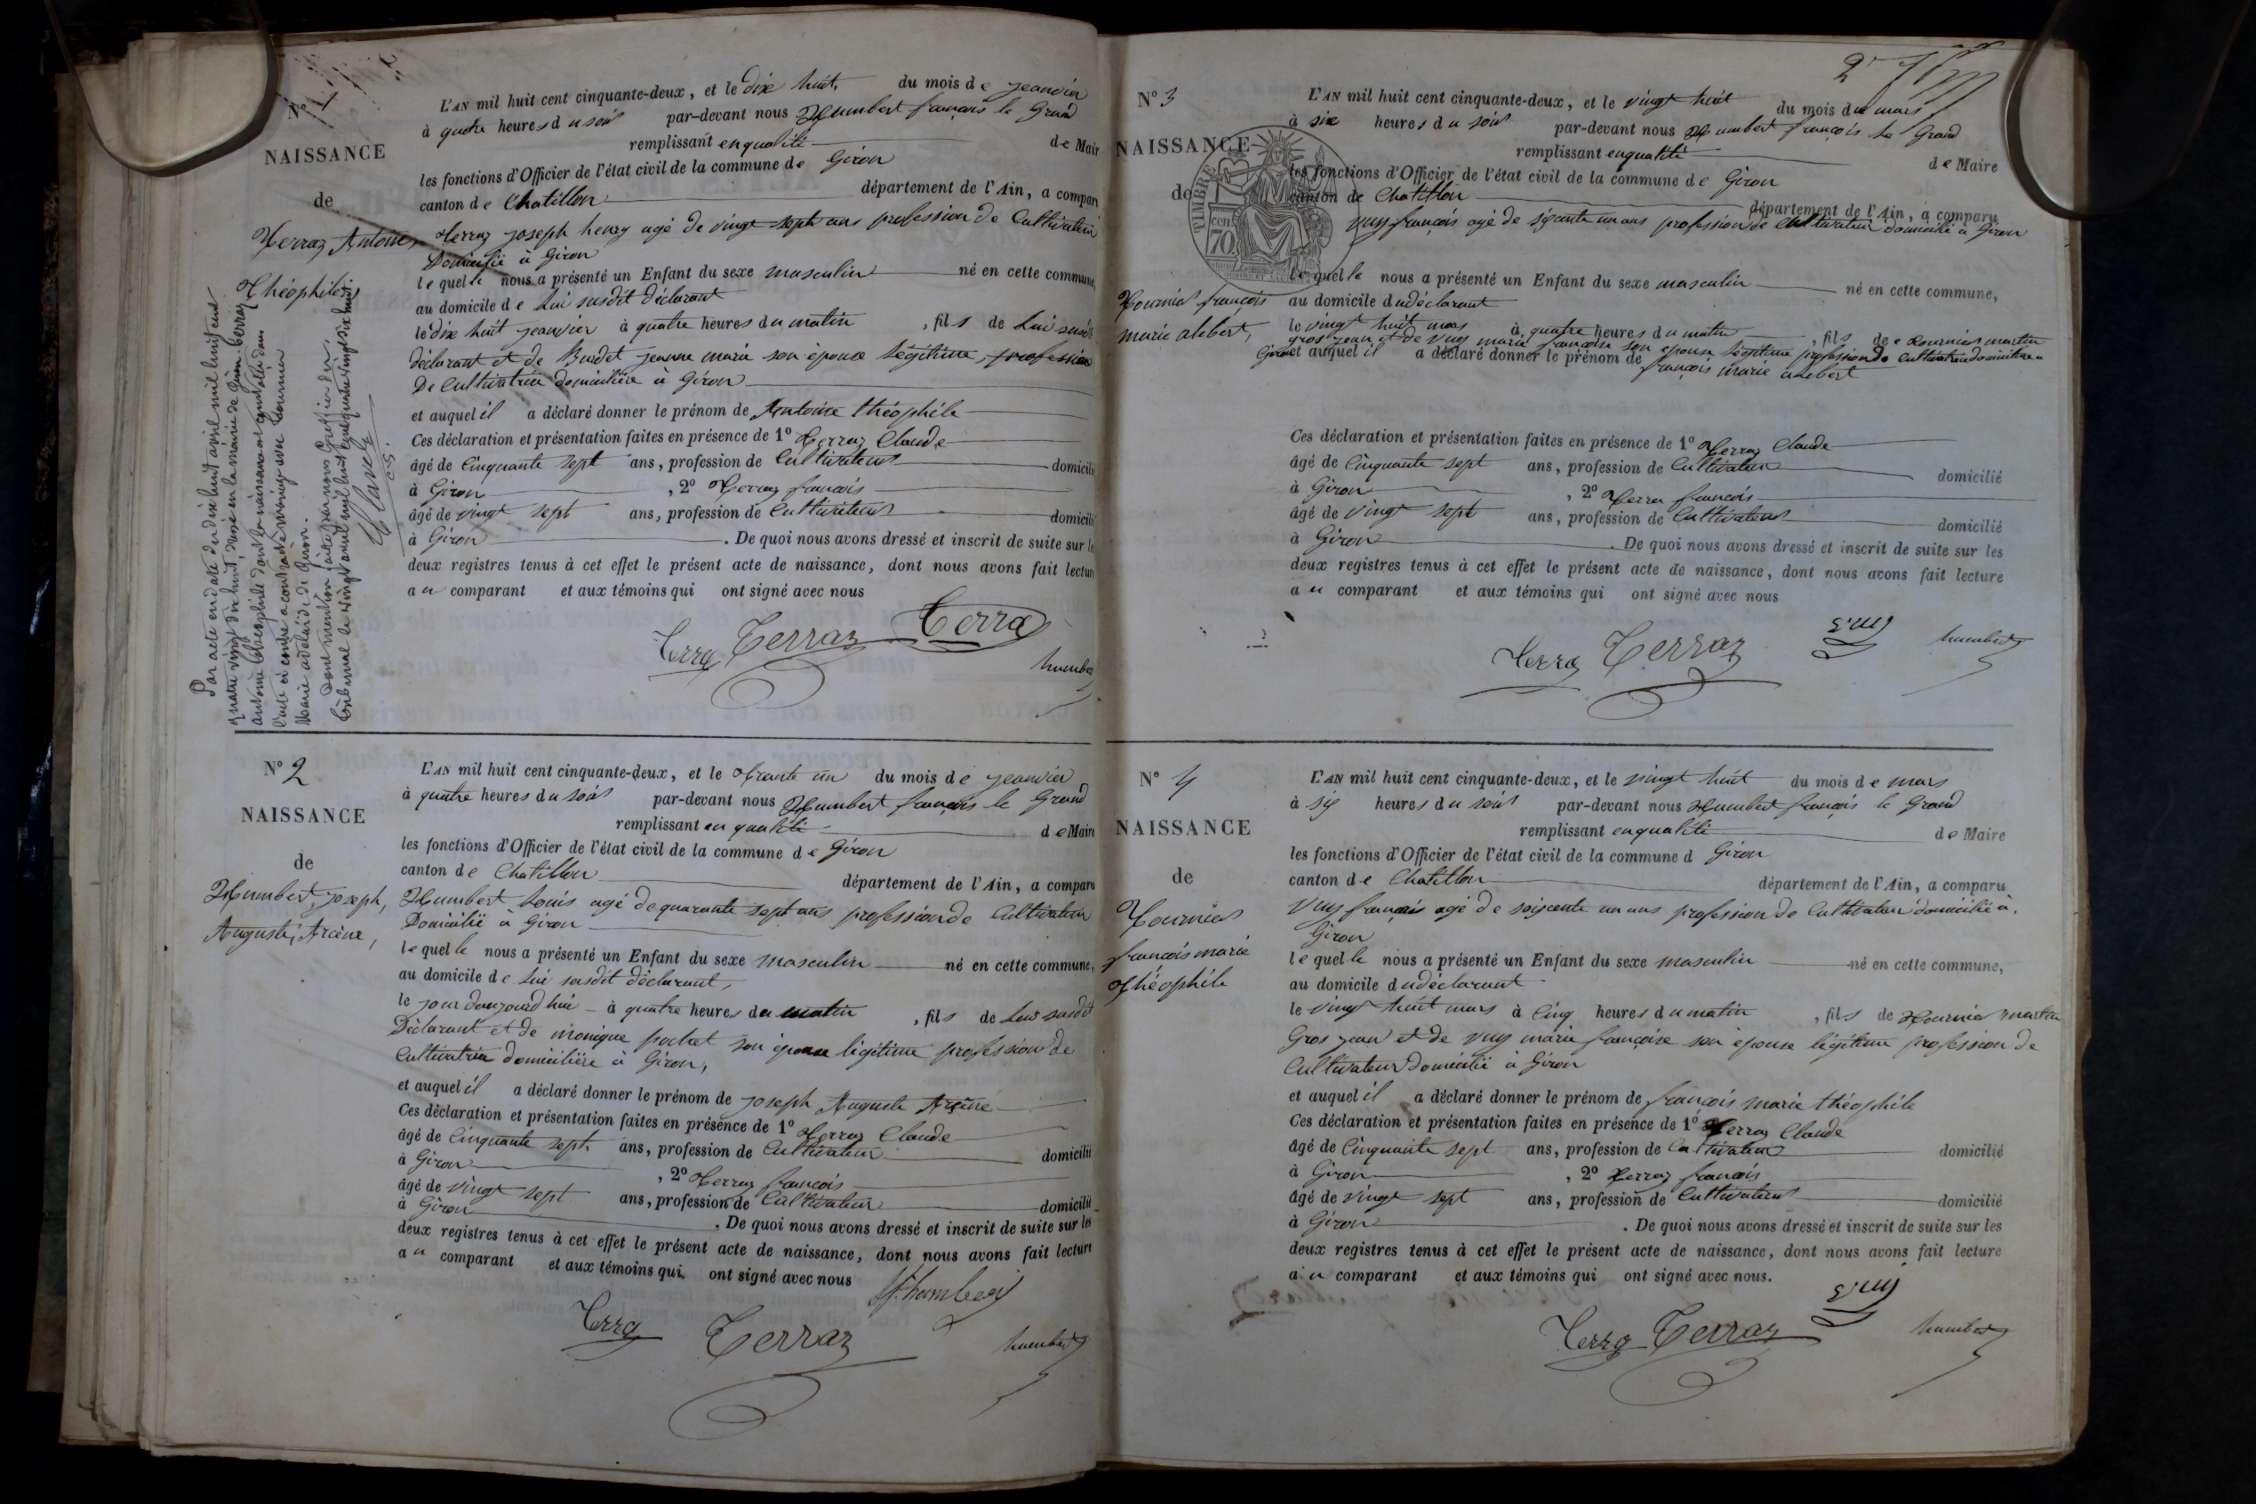 N° 1
NAISSANCE
de
Terraz Antoine
Théophile
L'AN mil huit cent cinquante-deux, et le dix huit du mois de jeanvier
à quatre heures du soir par-devant nous Humbert françois le Grand
remplissant en qualité de Mair
les fonctions d'Officier de l'état civil de la commune de Giron
canton de Chatillon département de l'Ain, a compar
Terraz joseph henry agé de vingt sept ans profession de Cultivateur
Domicilié à Giron
lequel le nous a présenté un Enfant du sexe masculin né en cette commune,
au domicile de Lui susdit déclarant
le dix huit jeanvier à quatre heures du matin, fils de Lui susdit
déclarant et de Burdet jeanne marie son épouse légitime, profession
De Cultivatrice domiciliée à Giron
et auquel il a déclaré donner le prénom de Antoine théophile
Ces déclaration et présentation faites en présence de 1° Terraz Claude
âgé de Cinquante sept ans, profession de Cultivateur domicilié
à Giron, 2° Terraz françois
âgé de vingt sept ans, profession de Cultivateur domicilié
à Giron. De quoi nous avons dressé et inscrit de suite sur le
deux registres tenus à cet effet le présent acte de naissance, dont nous avons fait lecture
au comparant et aux témoins qui ont signé avec nous
Terra Terraz Terra
humbe
Par acte en date du dix huit avril mil huit cent
quatre vingt dix huit, dressé en la mairie de Giron, Terraz
antoine théophile dont la naissance est constatée dans
l'acte ci contre a contracté mariage avec Tournier
Marie adélaïde de Giron.
Dont mention faite par nous Greffier du
tribunal le vingt avril mil huit cent quatre vingt dix huit
N° 2
NAISSANCE
de
Humbert, joseph,
Auguste, Arcène,
L'AN mil huit cent cinquante-deux, et le trante un du mois de jeanvier
à quatre heures du soir par-devant nous Humbert françois le Grand
remplissant en qualité de Maire
les fonctions d'Officier de l'état civil de la commune de Giron
canton de Chatillon département de l'Ain, a comparu
Humbert Louis agé de quarante sept ans profession de Cultivateur
Domicilié à Giron
lequel le nous a présenté un Enfant du sexe masculin né en cette commune,
au domicile de Lui susdit déclarant,
le jour d'aujourd'hui à quatre heures du matin, fils de Lui susdit
Déclarant et de monique pochet son épouse légitime profession de
Cultivatrice domiciliée à Giron,
et auquel il a déclaré donner le prénom de joseph Auguste Arcène
Ces déclaration et présentation faites en présence de 1° Terraz Claude
âgé de Cinquante sept ans, profession de Cultivateur domicilié
à Giron, 2° Terraz françois
âgé de vingt sept ans, profession de Cultivateur domicilié
à Giron. De quoi nous avons dressé et inscrit de suite sur les
deux registres tenus à cet effet le présent acte de naissance, dont nous avons fait lecture
au comparant et aux témoins qui ont signé avec nous
humbert
Terra Terraz humbert
2
N° 3
NAISSANCE
de
Tournier françois
marie alebert,
TIMBRE
cen
70
L'AN mil huit cent cinquante-deux, et le vingt huit du mois de mars
à six heures du soir par-devant nous Humbert françois le Grand
remplissant en qualité de Maire
les fonctions d'Officier de l'état civil de la commune de Giron
canton de Chatillon département de l'Ain, a comparu
Vuy françois agé de soiçante un ans profession de Cultivateur domicilié à Giron
lequel le nous a présenté un Enfant du sexe masculin né en cette commune,
au domicile du déclarant
le vingt huit mars à quatre heures du matin, fils de Tournier martin
gros jean et de Vuy marie françoise son épouse légitime profession de Cultivateur domicilié à
Giron et auquel il a déclaré donner le prénom de françois marie alebert
Ces déclaration et présentation faites en présence de 1° Terraz Claude
âgé de Cinquante sept ans, profession de Cultivateur domicilié
à Giron, 2° Terraz françois
âgé de vingt sept ans, profession de Cultivateur domicilié
à Giron. De quoi nous avons dressé et inscrit de suite sur les
deux registres tenus à cet effet le présent acte de naissance, dont nous avons fait lecture
au comparant et aux témoins qui ont signé avec nous
Terra Terraz vuy humbert
N° 4
NAISSANCE
de
Tournier
françois marie
théophile
L'AN mil huit cent cinquante-deux, et le vingt huit du mois de mars
à six heures du soir par-devant nous Humbert françois le Grand
remplissant en qualité de Maire
les fonctions d'Officier de l'état civil de la commune d Giron
canton de Chatillon département de l'Ain, a comparu
Vuy françois agé de soiscente un ans profession de Cultivateur domicilié à
Giron
lequel le nous a présenté un Enfant du sexe masculin né en cette commune,
au domicile du déclarant
le vingt huit mars à Cinq heures du matin, fils de Tournier martin
Gros jean et de Vuy marie françoise son épouse légitime profession de
Cultivateur Domicilié à Giron
et auquel il a déclaré donner le prénom de françois marie théophile
Ces déclaration et présentation faites en présence de 1° Terraz Claude
âgé de Cinquante sept ans, profession de Cultivateur domicilié
à Giron, 2° Terraz françois
âgé de vingt sept ans, profession de Cultivateur domicilié
à Giron. De quoi nous avons dressé et inscrit de suite sur les
deux registres tenus à cet effet le présent acte de naissance, dont nous avons fait lecture
au comparant et aux témoins qui ont signé avec nous.
Terra Terraz vuy humbert